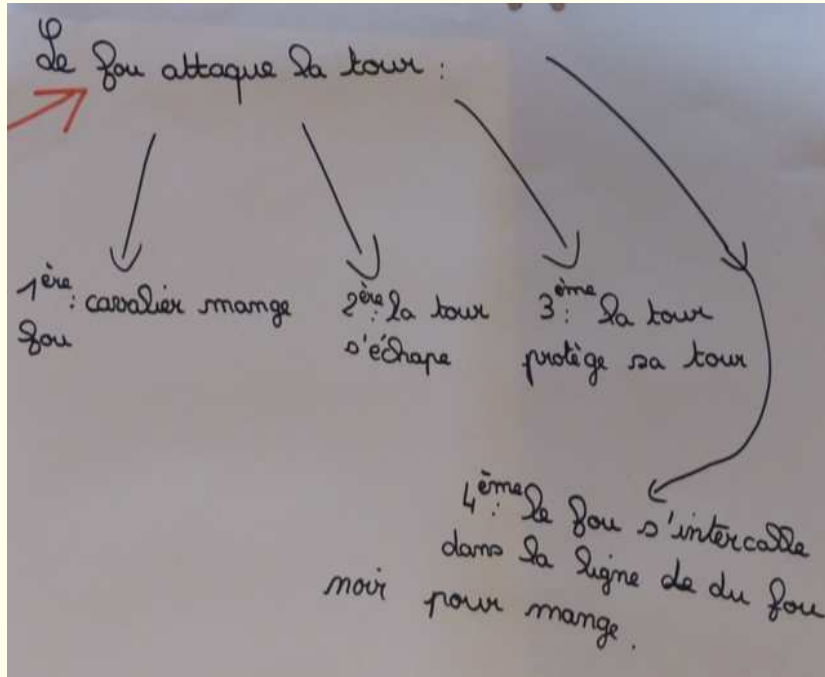 Le fou attaque la tour :
1ère : cavalier mange
fou
2ère : la tour
s'échape
3ème : la tour
protège sa tour
4ème : le fou s'intercalle
dans la ligne de du fou
noir pour mange.